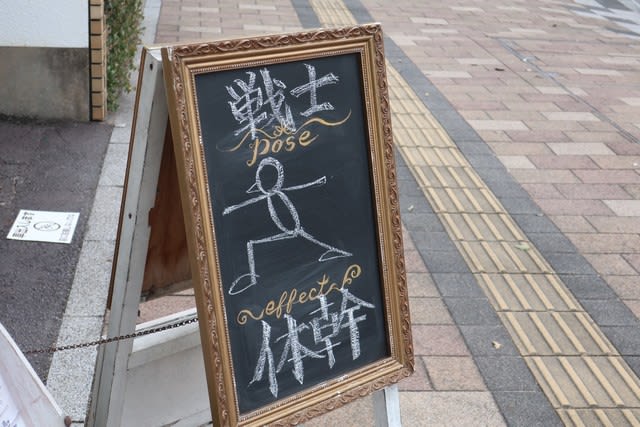 戦士
の
pose
effect
体幹